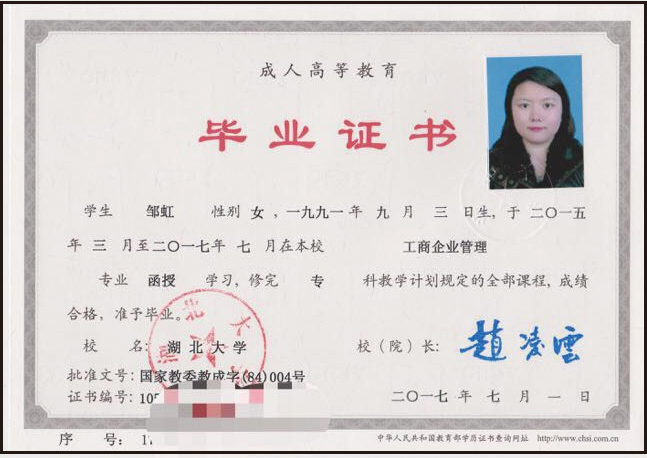 成人高等教育
毕业证书
学生 邹虹 性别 女，一九九一年 九 月 三 日生，于 二〇一五
年 三 月至二〇一七年 七 月在本校 工商企业管理
专业 函授 学习，修完 专 科教学计划规定的全部课程，成绩
合格，准予毕业。
校 名：湖北大学 校（院）长：趙凌雲
批准文号：国家教委教成字(84)004号
证书编号：105 二〇一七年 七 月 一 日
序 号： 中华人民共和国教育部学历证书查询网址 http://www.chsi.com.cn